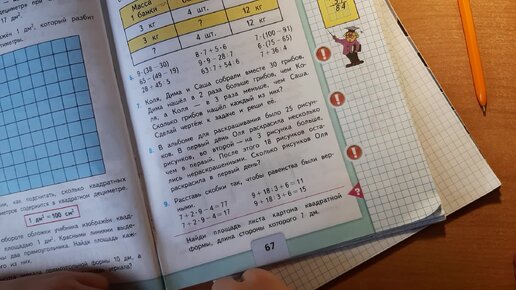 17 дм².
Масса
1 банки
3 кг
4 шт.
?
3 кг
?
12 кг
?
4 шт.
12 кг
6. 9·(38 − 30)
65 − (49 − 19)
28 + 45 : 5
8·7 + 5·6
9·9 − 28:7
63:7 + 54:6
7·(100 − 91)
6·(75 − 65)
7 + 36:4
7. Коля, Дима и Саша собрали вместе 30 грибов.
Дима нашёл в 2 раза больше грибов, чем Ко-
ля, а Коля — в 3 раза меньше, чем Саша.
Сколько грибов нашёл каждый из них?
Сделай чертёж к задаче и реши её.
8. В альбоме для раскрашивания было 25 рисун-
ков. В первый день Оля раскрасила несколько
рисунков, во второй — на 3 рисунка больше,
чем в первый. После этого 18 рисунков оста-
лись нераскрашенными. Сколько рисунков Оля
раскрасила в первый день?
9. Расставь скобки так, чтобы равенства были вер-
ными.
7 + 2·9 − 4 = 77
7 + 2·9 − 4 = 17
9 + 18:3 + 6 = 11
9 + 18:3 + 6 = 15
Найди площадь листа картона квадратной
формы, длина стороны которого 7 дм.
67
сколько квадратных
содержится в квадратном дециметре.
1 дм² = 100 см²
обороте обложки учебника изображён квад-
площадью 1 дм². Красными линиями выде-
ны два прямоугольника. Найди площадь каж-
го из них.
формы 10 дм, а
зеркала?